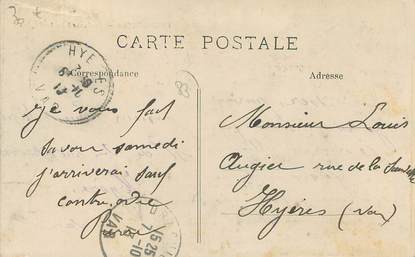 CARTE POSTALE
Correspondance
Adresse
HYERES
VAR
83
je vous fait
savoir samedi
j'arriverai sauf
contre ordre
Monsieur Louis
Augier rue de la
Hyères (Var)
15 25
VAR